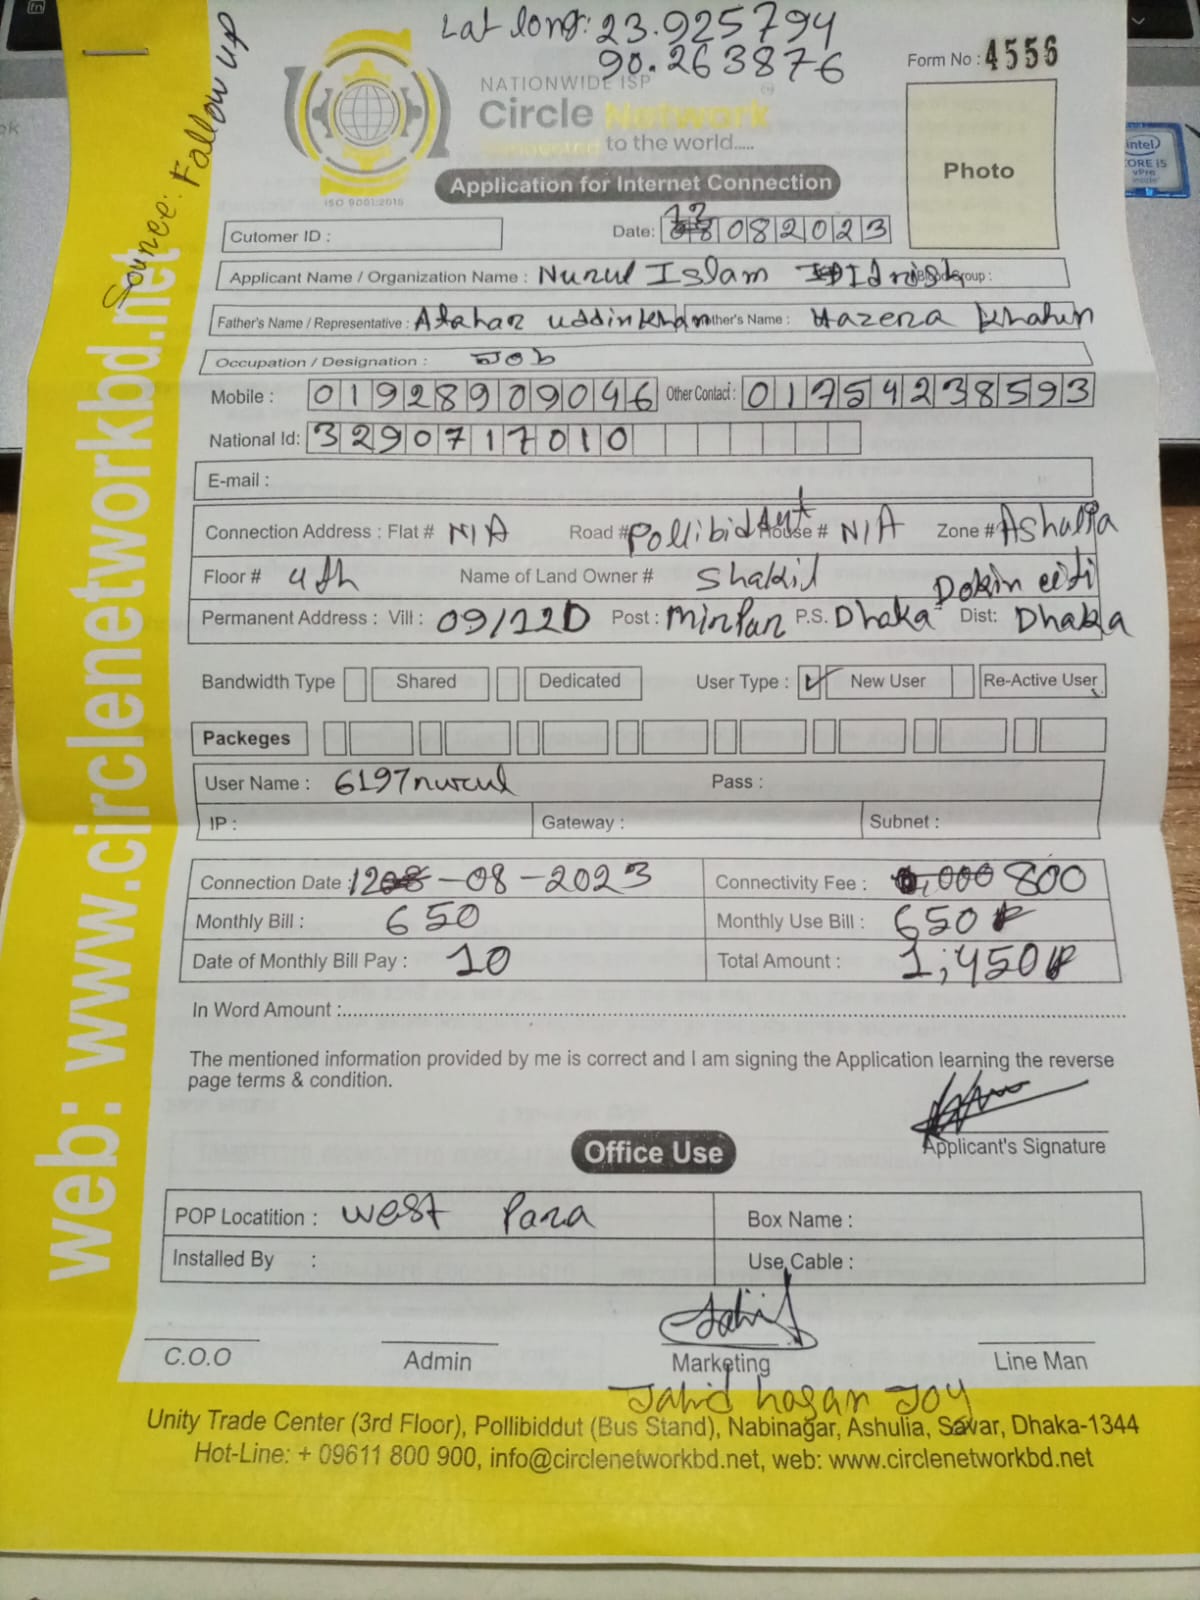 Lat long: 23.925794
90.263876
Source: Fallow up
Form No : 4556
NATIONWIDE ISP
Circle Network
Connected to the world.....
ISO 9001:2015
Photo
Application for Internet Connection
Cutomer ID :
Date: 12 08 2023
Applicant Name / Organization Name : Nurul Islam Idrish Group :
Father's Name / Representative : Atahar uddin khan ther's Name : Hazera khatun
Occupation / Designation : Job
Mobile : 01928909046 Other Contact : 01754238593
National Id: 3290717010
E-mail :
Connection Address : Flat # N/A Road # Pollibiddut House # N/A Zone # Ashulia
Floor # 4th Name of Land Owner # Shakil
Permanent Address : Vill : 09/12D Post : Mirpur P.S. Dhaka Dokin citi Dist: Dhaka
Bandwidth Type Shared Dedicated User Type : ✓ New User Re-Active User
Packeges
User Name : 6197nurul Pass :
IP : Gateway : Subnet :
Connection Date : 12 -08-2023 Connectivity Fee : 800
Monthly Bill : 650 Monthly Use Bill : 650
Date of Monthly Bill Pay : 10 Total Amount : 1,450
In Word Amount :
The mentioned information provided by me is correct and I am signing the Application learning the reverse
page terms & condition.
Applicant's Signature
Office Use
POP Locatition : West Para Box Name :
Installed By : Use Cable :
C.O.O Admin Marketing Line Man
Jahid hasan Joy
Unity Trade Center (3rd Floor), Pollibiddut (Bus Stand), Nabinagar, Ashulia, Savar, Dhaka-1344
Hot-Line: + 09611 800 900, info@circlenetworkbd.net, web: www.circlenetworkbd.net
web: www.circlenetworkbd.net
intel
CORE i5
vPro
inside
fn